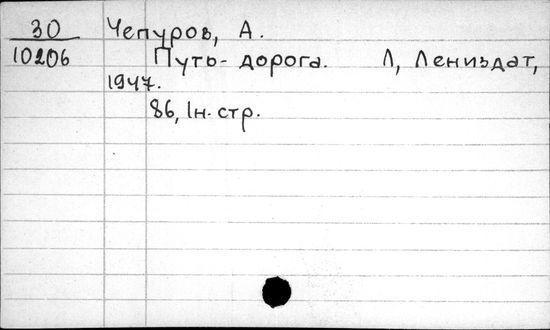 30 Чепуров, А.
10206 Путь-дорога. Л, Лениздат,
1947.
86, 1н. стр.